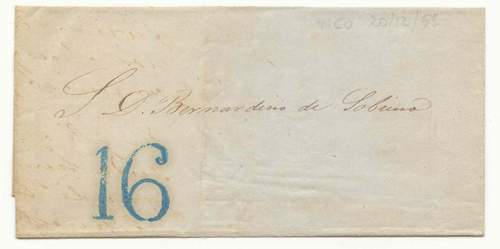 VIGO 20/12/58
S. D. Bernardino de Sobrino
16